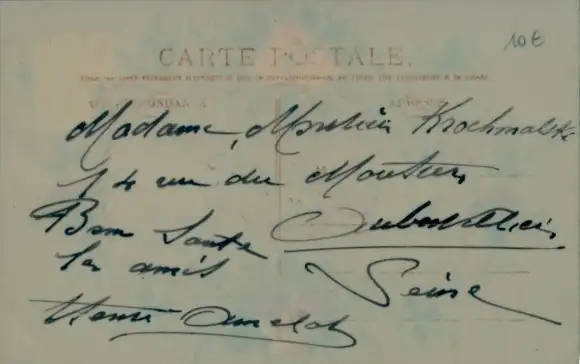 10€
CARTE POSTALE
CORRESPONDANCE
ADRESSE
Madame, Monsieur Krochmalski
14 rue du Moutier
Bonne Santé
Aubervilliers
les amis
Seine
Henri Amelot